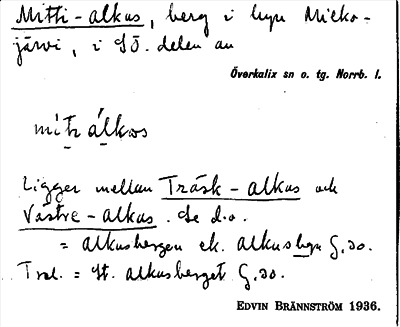 Mitti-alkus, berg i byn Mieko-
järvi, i SÖ. delen av
Överkalix sn o. tg. Norrb. l.
mìtı álkǝs
Ligger mellan Träsk-alkus och
Västre-alkus. Se d.o.
= alkusbergen ek. alkusbyn
Tral. = St. alkusberget
EDVIN BRÄNNSTRÖM 1936.